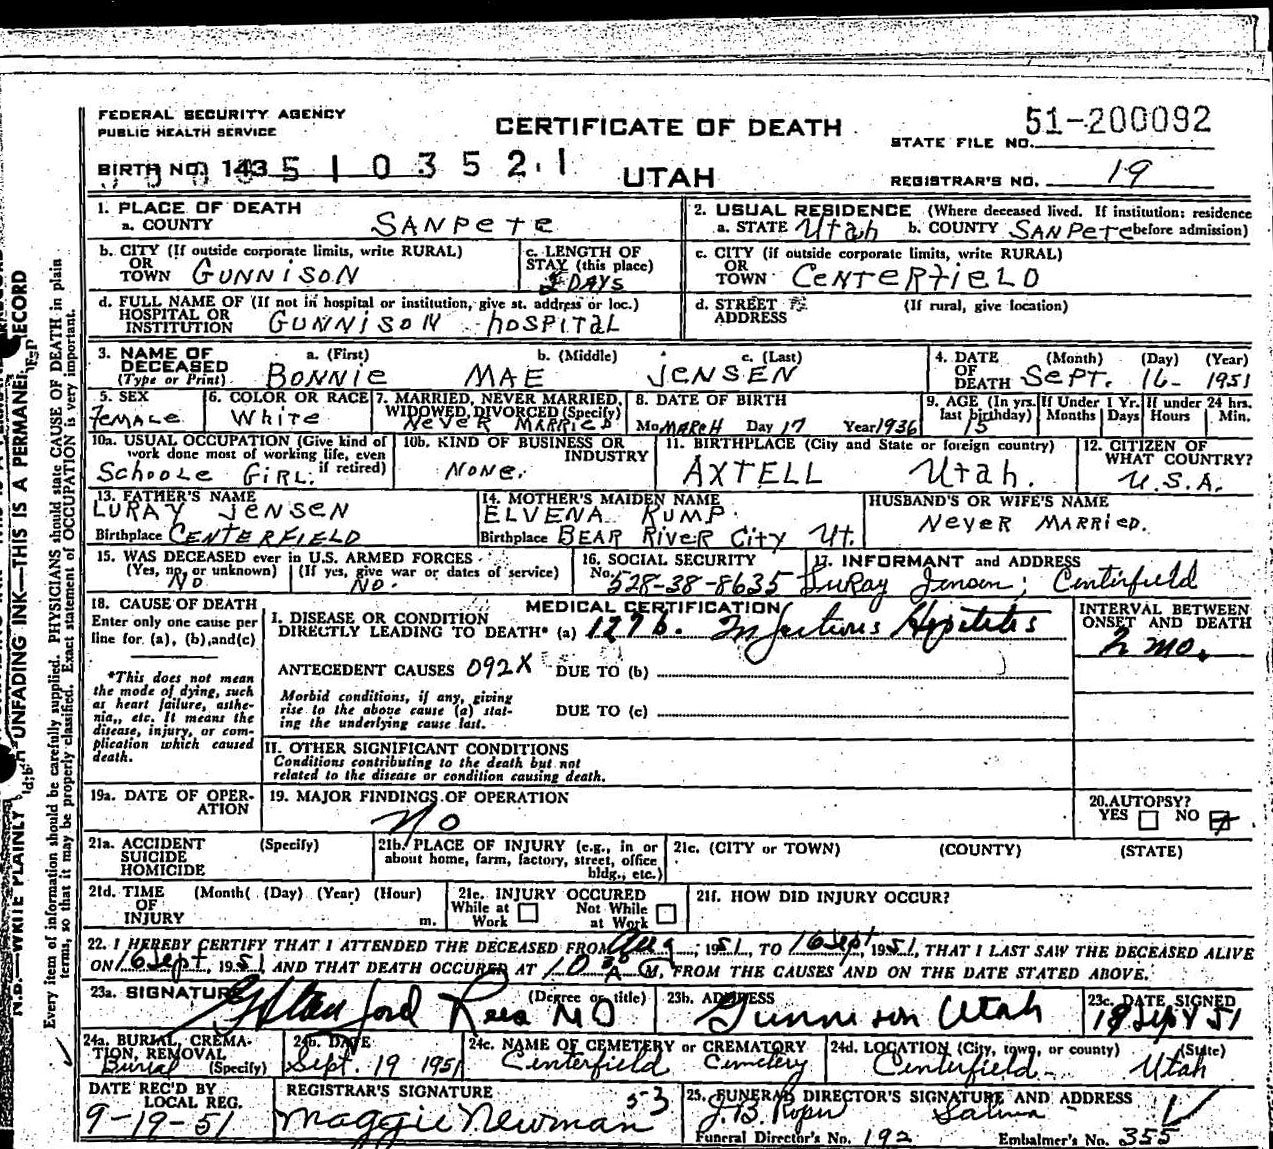 FEDERAL SECURITY AGENCY
PUBLIC HEALTH SERVICE
CERTIFICATE OF DEATH
UTAH
STATE FILE NO. 51-200092
BIRTH NO. 143 5 1 0 3 5 2 1
REGISTRAR'S NO. 19
1. PLACE OF DEATH
a. COUNTY SANPETE
2. USUAL RESIDENCE (Where deceased lived. If institution: residence before admission)
a. STATE Utah b. COUNTY SANPETE
b. CITY (If outside corporate limits, write RURAL)
OR
TOWN GUNNISON
c. LENGTH OF
STAY (this place)
DAYS
c. CITY (if outside corporate limits, write RURAL)
OR
TOWN CENTERFIELD
d. FULL NAME OF (If not in hospital or institution, give st. address or loc.)
HOSPITAL OR
INSTITUTION GUNNISON HOSPITAL
d. STREET (If rural, give location)
ADDRESS
3. NAME OF
DECEASED
(Type or Print)
a. (First) b. (Middle) c. (Last)
BONNIE MAE JENSEN
4. DATE (Month) (Day) (Year)
OF
DEATH SEPT. 16- 1951
5. SEX
FEMALE
6. COLOR OR RACE
White
7. MARRIED, NEVER MARRIED,
WIDOWED, DIVORCED (Specify)
NEVER MARRIED
8. DATE OF BIRTH
Mo MARCH Day 17 Year 1936
9. AGE (In yrs. last birthday) 15
If Under 1 Yr. Months Days
If under 24 hrs. Hours Min.
10a. USUAL OCCUPATION (Give kind of
work done most of working life, even
if retired)
SCHOOLE GIRL.
10b. KIND OF BUSINESS OR
INDUSTRY
NONE.
11. BIRTHPLACE (City and State or foreign country)
AXTELL Utah.
12. CITIZEN OF
WHAT COUNTRY?
U.S.A.
13. FATHER'S NAME
LURAY JENSEN
Birthplace CENTERFIELD
14. MOTHER'S MAIDEN NAME
ELVENA RUMP.
Birthplace BEAR RIVER CITY UT.
HUSBAND'S OR WIFE'S NAME
NEVER MARRIED.
15. WAS DECEASED ever in U.S. ARMED FORCES
(Yes, no, or unknown) (If yes, give war or dates of service)
NO NO
16. SOCIAL SECURITY
No. 528-38-8635
17. INFORMANT and ADDRESS
LuRay Jensen; Centerfield
18. CAUSE OF DEATH
Enter only one cause per
line for (a), (b), and (c)
*This does not mean
the mode of dying, such
as heart failure, asthe-
nia,, etc. It means the
disease, injury, or com-
plication which caused
death.
MEDICAL CERTIFICATION
I. DISEASE OR CONDITION
DIRECTLY LEADING TO DEATH* (a) 127b. Infectious Hepititis
ANTECEDENT CAUSES 092X DUE TO (b)
Morbid conditions, if any, giving
rise to the above cause (a) stat-
ing the underlying cause last.
DUE TO (c)
INTERVAL BETWEEN
ONSET AND DEATH
2 mo.
II. OTHER SIGNIFICANT CONDITIONS
Conditions contributing to the death but not
related to the disease or condition causing death.
19a. DATE OF OPER-
ATION
19. MAJOR FINDINGS OF OPERATION
No
20. AUTOPSY?
YES NO
21a. ACCIDENT (Specify)
SUICIDE
HOMICIDE
21b. PLACE OF INJURY (e.g., in or
about home, farm, factory, street, office
bldg., etc.)
21c. (CITY or TOWN) (COUNTY) (STATE)
21d. TIME (Month( (Day) (Year) (Hour)
OF
INJURY m.
21e. INJURY OCCURED
While at Work Not While at Work
21f. HOW DID INJURY OCCUR?
22. I HEREBY CERTIFY THAT I ATTENDED THE DECEASED FROM Aug, 1951, TO 16 Sept 1951, THAT I LAST SAW THE DECEASED ALIVE
ON 16 Sept, 1951 AND THAT DEATH OCCURED AT 10 A M, FROM THE CAUSES AND ON THE DATE STATED ABOVE.
23a. SIGNATURE (Degree or title)
G Stanford Rees MD
23b. ADDRESS
Gunnison Utah
23c. DATE SIGNED
18 Sept 51
24a. BURIAL, CREMA-
TION, REMOVAL
(Specify)
Burial
24b. DATE
Sept. 19 1951
24c. NAME OF CEMETERY or CREMATORY
Centerfield Cemetery
24d. LOCATION (City, town, or county) (State)
Centerfield- Utah
DATE REC'D BY
LOCAL REG.
9-19-51
REGISTRAR'S SIGNATURE 53
Maggie Newman
25. FUNERAL DIRECTOR'S SIGNATURE AND ADDRESS
J.B. Roper Salina
Funeral Director's No. 192 Embalmer's No. 355
N.B.—WRITE PLAINLY UNFADING INK—THIS IS A PERMANENT RECORD
Every item of information should be carefully supplied. PHYSICIANS should state CAUSE OF DEATH in plain
terms, so that it may be properly classified. Exact statement of OCCUPATION is very important.